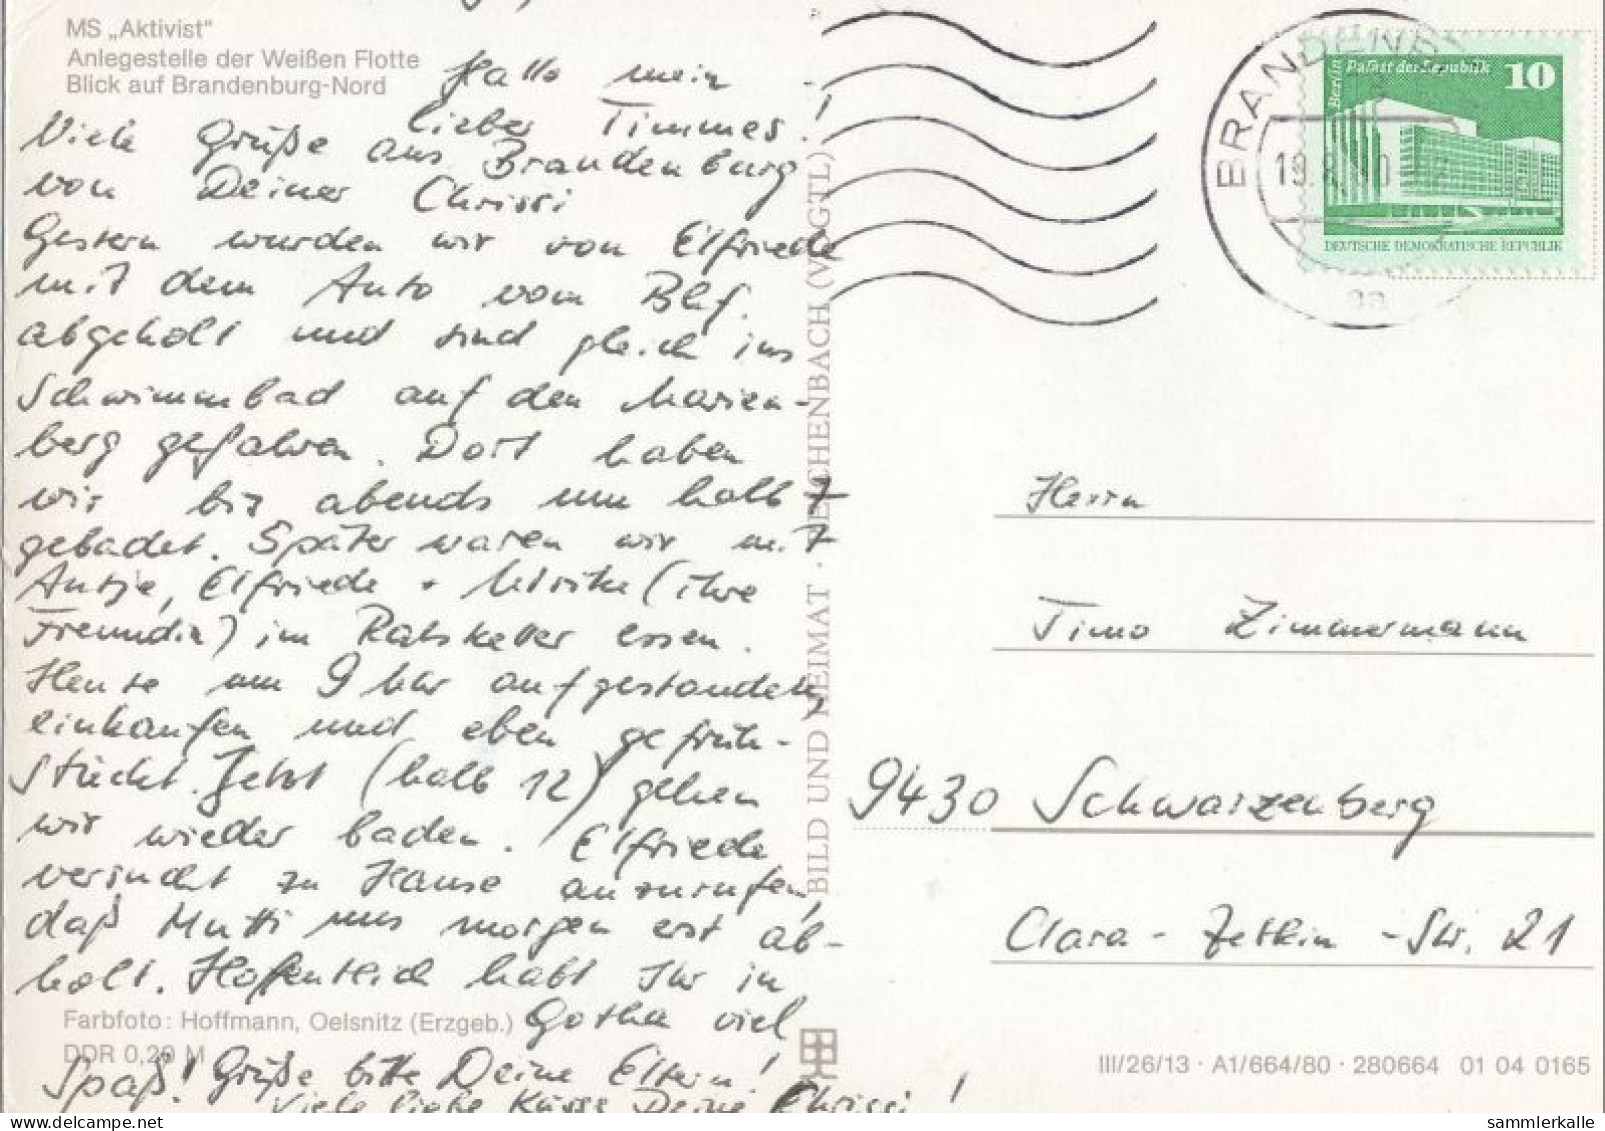 MS „Aktivist"
Anlegestelle der Weißen Flotte
Blick auf Brandenburg-Nord
Hallo mein
lieber Timmes!
Viele Grüße aus Brandenburg
von Deiner Chrissi
Gestern wurden wir von Elfriede
mit dem Auto vom Bhf.
abgeholt und sind gleich ins
Schwimmbad auf den Marien-
berg gefahren. Dort haben
wir bis abends um halb 7
gebadet. Später waren wir mit
Antje, Elfriede + Ulrike (ihre
Freundin) im Ratskeller essen.
Heute um 9 Uhr aufgestanden,
einkaufen und eben gefrüh-
stückt. Jetzt (halb 12) gehen
wir wieder baden. Elfriede
versucht zu Hause anzurufen,
daß Mutti uns morgen erst ab-
holt. Hoffentlich habt Ihr in
Gotha viel
Spaß! Grüße bitte Deine Eltern!
Viele liebe Küsse Deine Chrissi!
Farbfoto: Hoffmann, Oelsnitz (Erzgeb.)
DDR 0,20 M
BILD UND HEIMAT · REICHENBACH (VOGTL)
BRANDENB
19.8. 0
Berlin
Palast der Republik
10
DEUTSCHE DEMOKRATISCHE REPUBLIK
Herrn
Timo Zimmermann
9430 Schwarzenberg
Clara-Zetkin-Str. 21
III/26/13 · A1/664/80 · 280664 01 04 0165
delcampe.net
sammlerkalle